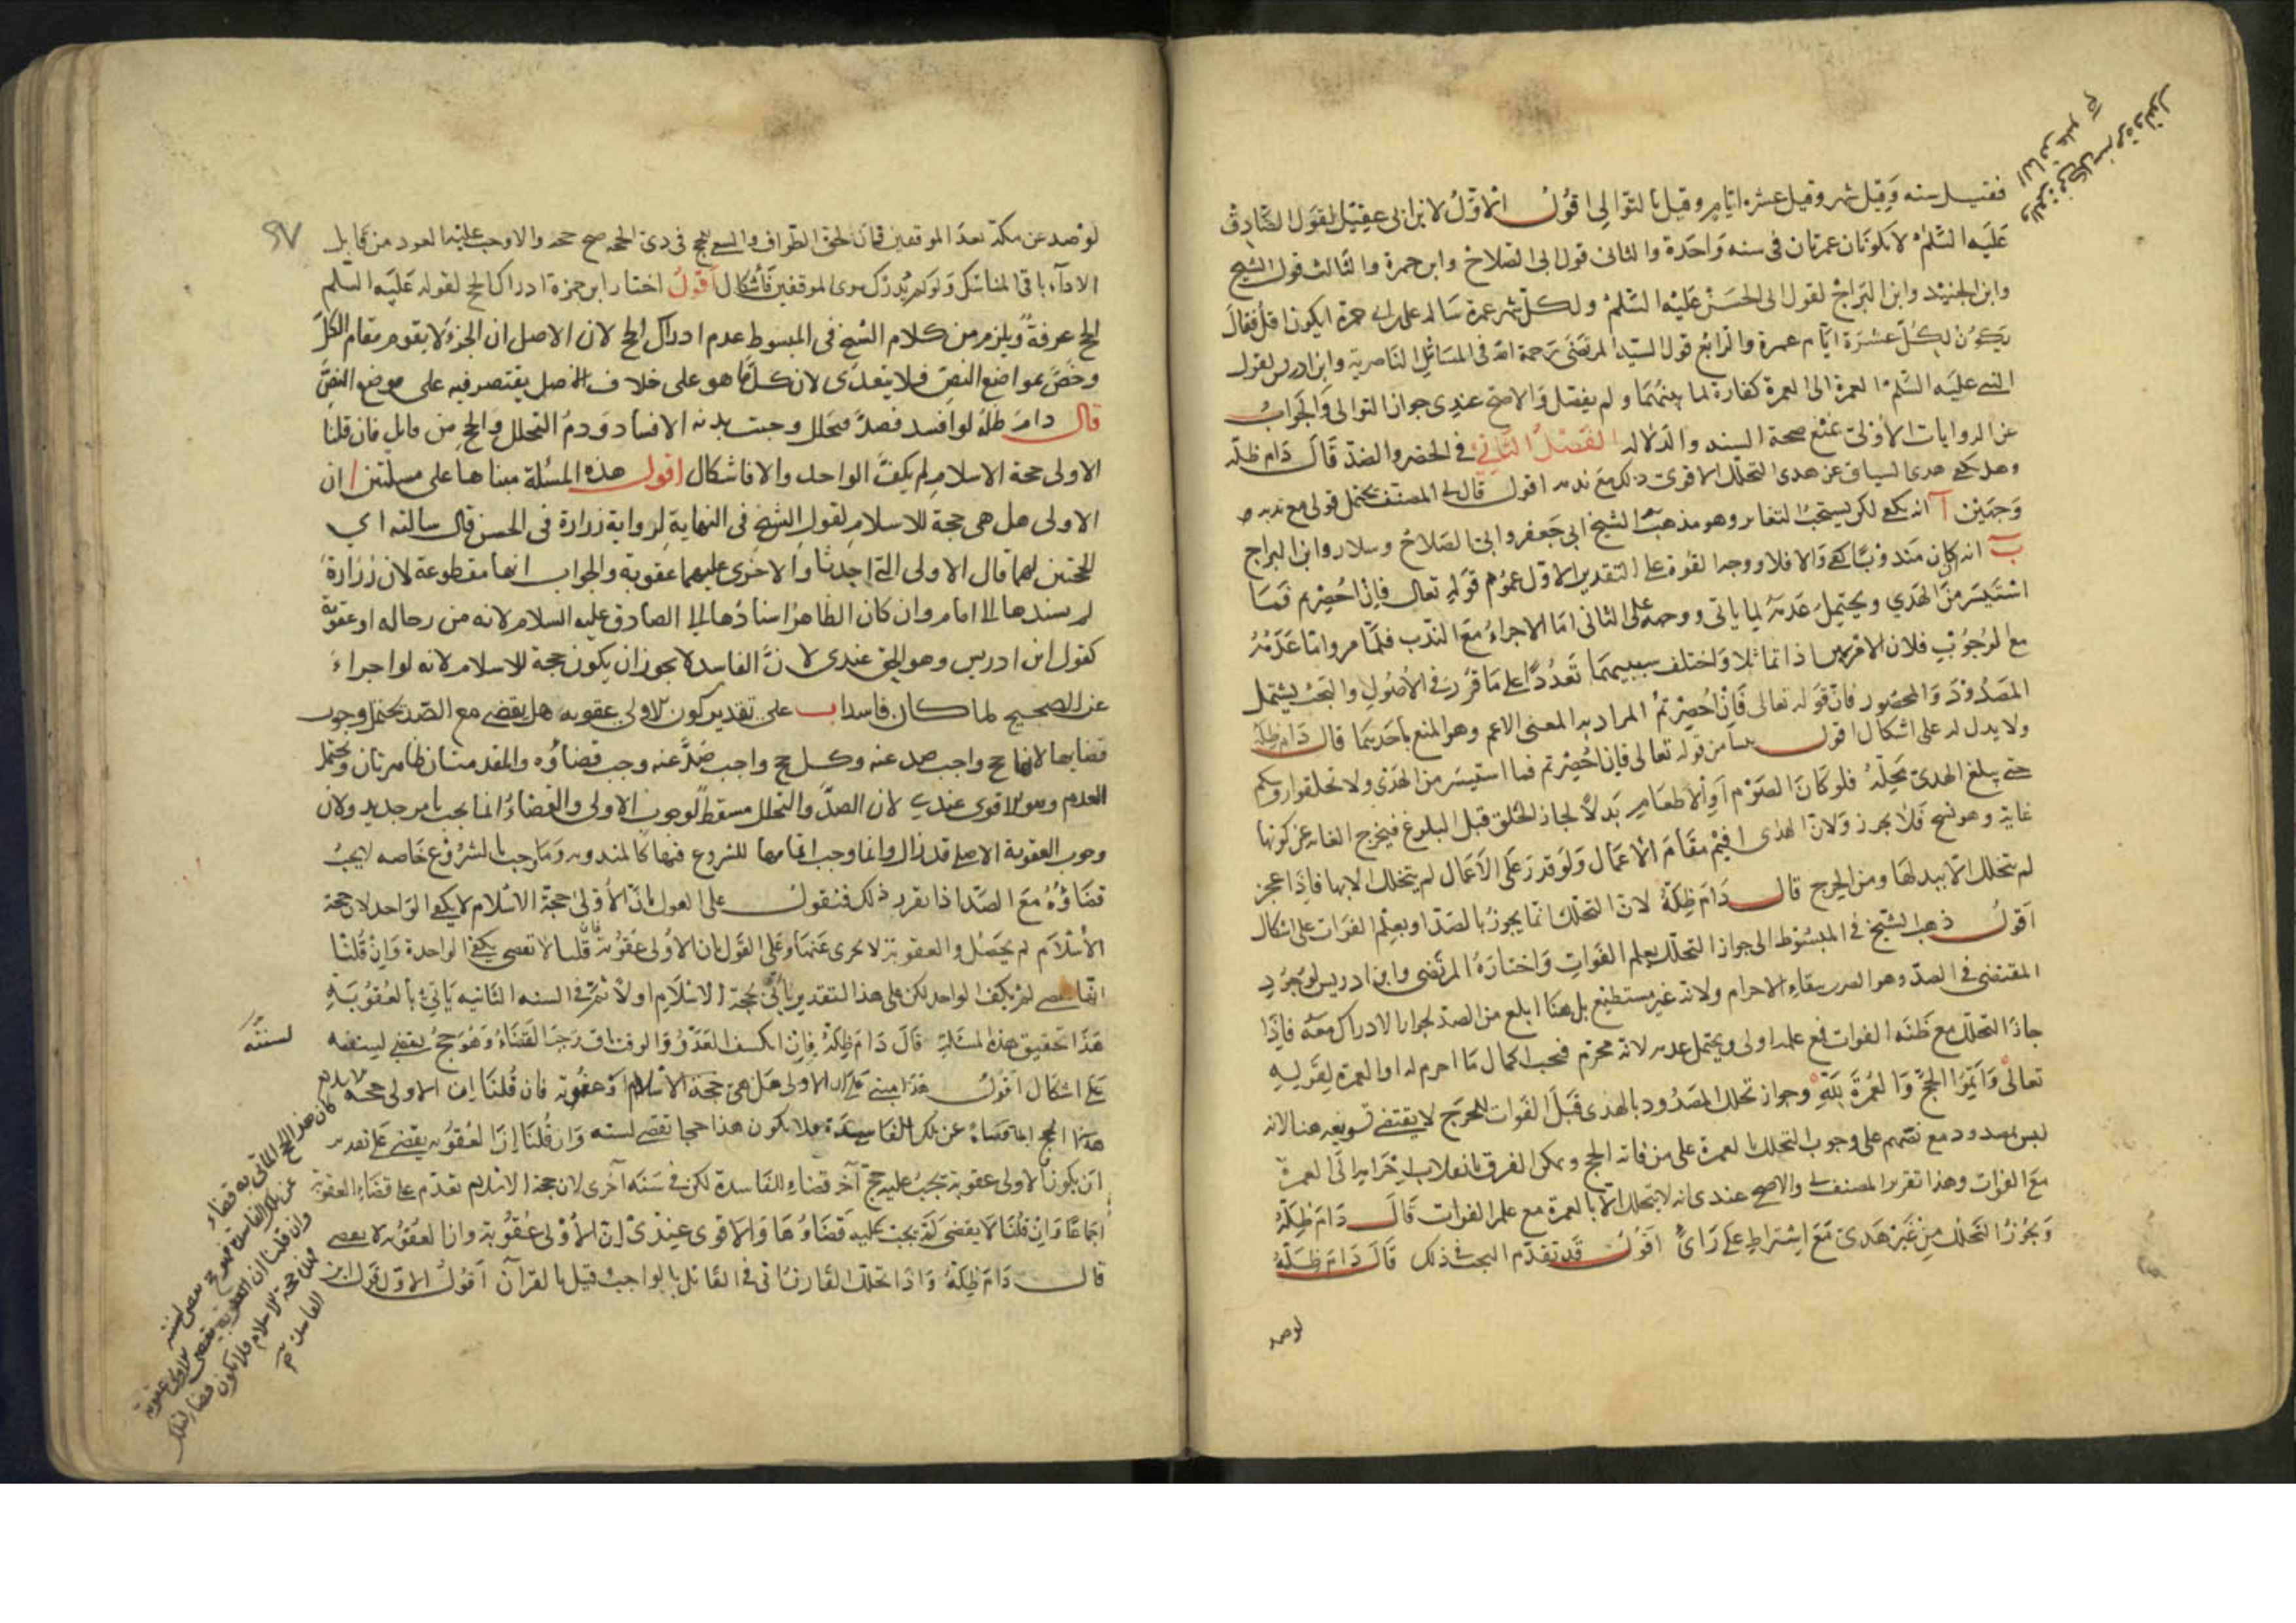 فقيل سنه وقيل شهر وقيل عشره ايام وقيل بالتوالى اقول الاول لابن ابى عقيل لقول الصادق
عليه السلم لا يكونان عمرتان فى سنه واحدة والثانى قول ابى الصلاح وابن حمزة والثالث قول الشيخ
وابن الجنيد وابن البراج لقول ابى الحسن عليه السلم ولكل شهر عمرة ساله على بن ابى حمزة ايكون اقل فقال
يكون لكل عشرة ايام عمرة والرابع قول السيد المرتضى رحمة الله فى المسائل الناصرية وابن ادريس لقول
النبى عليه السلم العمرة الى العمرة كفارة لما بينهما ولم يفصل والاصح عندى جواز التوالى والجواب
عن الروايات الاولى بمنع صحة السند والدلاله الفصل الثانى فى الحصر والصد قال دام ظله
وهل يكفى هدى السياق عن هدى التحلل الاقوى ذلك مع ندبه اقول قال المصنف يحتمل قولى مع ندبه
وجهين آ انه يكفى لكن يستحب التغاير وهو مذهب الشيخ ابى جعفر وابى الصلاح وسلار وابن البراج
ب انه ان كان مندوبا كفى والا فلا ووجه القوة على التقدير الاول عموم قوله تعالى فان احصرتم فما
استيسر من الهدي ويحتمل عدمه لما ياتى ووجهه على الثانى اما الاجزاء مع الندب فلما مر واما عدمه
مع الوجوب فلان الامرين اذا تماثلا واختلف سببيهما تعددا على ما قرر فى الاصول والبحث يشتمل
المصدود والمحصور فان قوله تعالى فان احصرتم المراد به المعنى الاعم وهو المنع باحديهما قال دام ظله
ولا بدل له على اشكال اقول ينشأ من قوله تعالى فان احصرتم فما استيسر من الهدى ولا تحلقوا رؤسكم
حتى يبلغ الهدى محله فلو كان الصوم او الاطعام بدلا لجاز الحلق قبل البلوغ فيخرج الغاية عن كونها
غاية وهو نسخ فلا يجوز ولان الهدى اقيم مقام الاعمال ولو قدر على الاعمال لم يتحلل الا بها فاذا عجز
لم يتحلل الا ببدلها ومن الحرج قال دام ظله لان التحلل انما يجوز بالصد او بعلم الفوات على اشكال
اقول ذهب الشيخ فى المبسوط الى جواز التحلل بعلم الفوات واختاره المرتضى وابن ادريس لوجود
المقتضى فى الصد وهو الضرر ببقاء الاحرام ولانه غير مستطيع بل هنا ابلغ من الصد لجواز الادراك معه فاذا
جاز التحلل مع ظنه الفوات فمع علمه اولى ويحتمل عدمه لانه محرم فيجب اكمال ما احرم له او العمرة لقوله
تعالى واتموا الحج والعمرة لله وجواز تحلل المصدود بالهدى قبل الفوات للحرج لا يقتضى تسويغه هنا لانه
ليس بمصدود مع نصهم على وجوب التحلل بالعمرة على من فاته الحج ويمكن الفرق بانقلاب احرامه الى العمرة
مع الفوات وهذا تقرير المصنف والاصح عندى انه لا يتحلل الا بالعمرة مع علم الفوات قال دام ظله
ويجوز التحلل من غير هدى مع اشتراط على رأى اقول قد تقدم البحث فى ذلك قال دام ظله
لو صد
٩٧
لو صد عن مكة بعد الموقفين فان لحق الطواف والسعى للحج فى ذى الحجه صح حجه والا وجب عليه العود من قابل
الاداء باقى المناسك ولو لم يدرك سوى الموقفين فاشكال اقول اختار ابن حمزة ادراك الحج لقوله عليه السلم
الحج عرفة ويلزم من كلام الشيخ فى المبسوط عدم ادراك الحج لان الاصل ان الجزء لا يقوم مقام الكل
وخص بمواضع النص فلا يتعدى لان كل ما هو على خلاف الاصل يقتصر فيه على موضع النص
قال دام ظله لو افسد فصد فتحلل وجبت بدنه الافساد ودم التحلل والحج من قابل فان قلنا
الاولى حجة الاسلام لم يكف الواحد والا فاشكال اقول هذه المسئلة مبناها على مسئلتين ا ان
الاولى هل هى حجة للاسلام لقول الشيخ فى النهاية لرواية زرارة فى الحسن قال سالته اى
الحجتين لهما قال الاولى التى احدثا والاخرى عليهما عقوبة والجواب انها مقطوعة لان زرارة
لم يسندها الى امام وان كان الظاهر اسنادها الى الصادق عليه السلام لانه من رجاله او عقوبة
كقول ابن ادريس وهو الحق عندى لان الفاسد لا يجوز ان يكون حجة للاسلام لانه لو اجزاء
عن الصحيح لما كان فاسدا ب على تقدير كون الاولى عقوبه هل يقضى مع الصد يحتمل وجوب
قضايها لانها حج واجب صد عنه وكل حج واجب صد عنه وجب قضاؤه والمقدمتان ظاهرتان ويحتمل
العدم وهو الاقوى عندى لان الصد والتحلل مسقط لوجوب الاولى والقضاء انما يجب بامر جديد ولان
وجوب العقوبة الاصلى قد زال وانما وجب اتمامها للشروع فيها كالمندوب وما وجب بالشروع خاصه لا يجب
قضاؤه مع الصد اذا تقرر ذلك فنقول على القول بان الاولى حجة الاسلام لا يكفى الواحد لان حجة
الاسلام لم يحصل والعقوبة لا تجزى عنها وعلى القول بان الاولى عقوبة فان قلنا لا تقضى يكفى الواحدة وان قلنا
انها تقضى لم يكف الواحد لكن على هذا التقدير ياتى بحجة الاسلام اولا ثم فى السنه الثانيه ياتى بالعقوبة
هذا تحقيق هذه المسئلة قال دام ظله فان انكشف العدو والوقت باق وجب القضاء وهو حج يقضى لسنته
على اشكال اقول هذا مبنى على ان الاولى هل هى حجة الاسلام او عقوبة فان قلنا ان الاولى حجه الاسلام
هذا الحج انما قضاء عن تلك الفاسدة فلا يكون هذا حجا تقضى لسنته وان قلنا ان العقوبه يقضى على تقدير
ان يكون الاولى عقوبة يجب عليه حج آخر قضاء للفاسدة لكن فى سنه أخرى لان حجة الاسلام تقدم على قضاء العقوبة
اجماعا وان قلنا لا يقضى لم يجب عليه قضاؤها والاقوى عندى ان الاولى عقوبة وان العقوبه لا تقضى
قال دام ظله واذا تحلل القارن اتى فى القابل بالواجب وقيل بالقران اقول الاول قول ابن
لسنته
كان هذا الحج الماتى به قضاء
عن تلك الفاسدة فهو حج يقضى لسنته
وان قلنا ان الاولى عقوبة
فهذه حجة الاسلام فلا يكون قضاء لتلك
الفاسدة صح